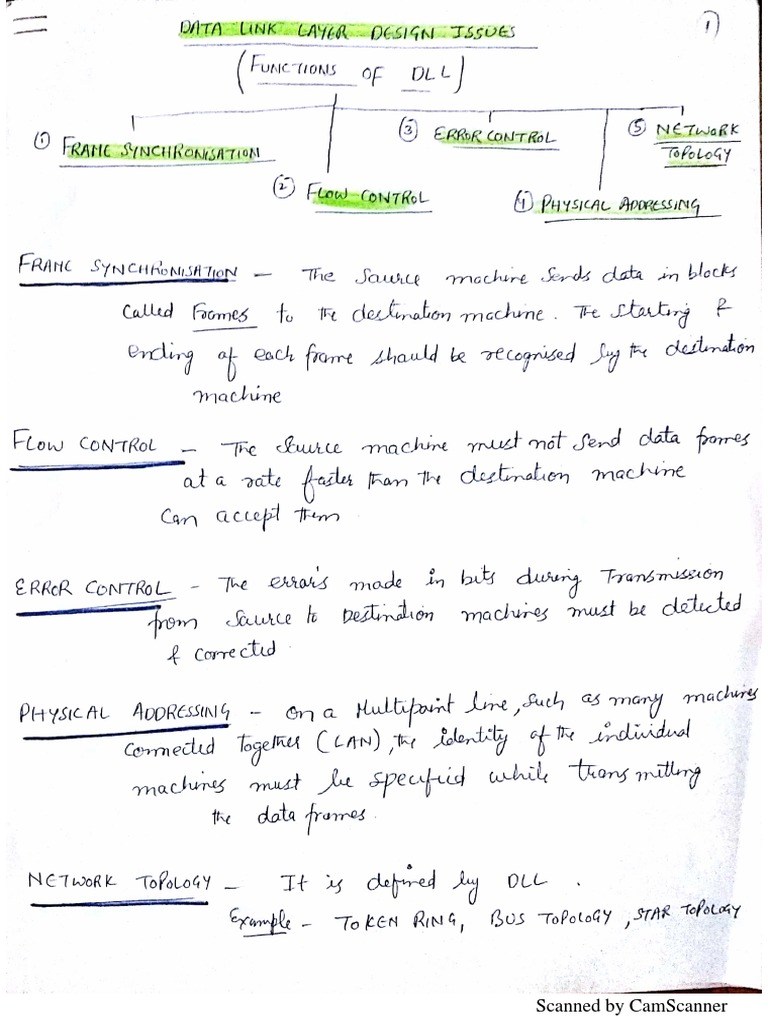 DATA LINK LAYER DESIGN ISSUES
1
(FUNCTIONS OF DLL)
① FRAME SYNCHRONISATION
③ ERROR CONTROL
⑤ NETWORK
TOPOLOGY
② FLOW CONTROL
④ PHYSICAL ADDRESSING
FRAME SYNCHRONISATION – The Source machine Sends data in blocks
called Frames to the destination machine. The starting &
ending of each frame should be recognised by the destination
machine
FLOW CONTROL – The Source machine must not send data frames
at a rate faster than the destination machine
Can accept them
ERROR CONTROL – The errors made in bits during Transmission
from Source to Destination machines must be detected
& corrected
PHYSICAL ADDRESSING – On a Multipoint line, such as many machines
connected together (LAN), the identity of the individual
machines must be specified while transmitting
the data frames.
NETWORK TOPOLOGY – It is defined by DLL.
Example – TOKEN RING, BUS TOPOLOGY, STAR TOPOLOGY
Scanned by CamScanner